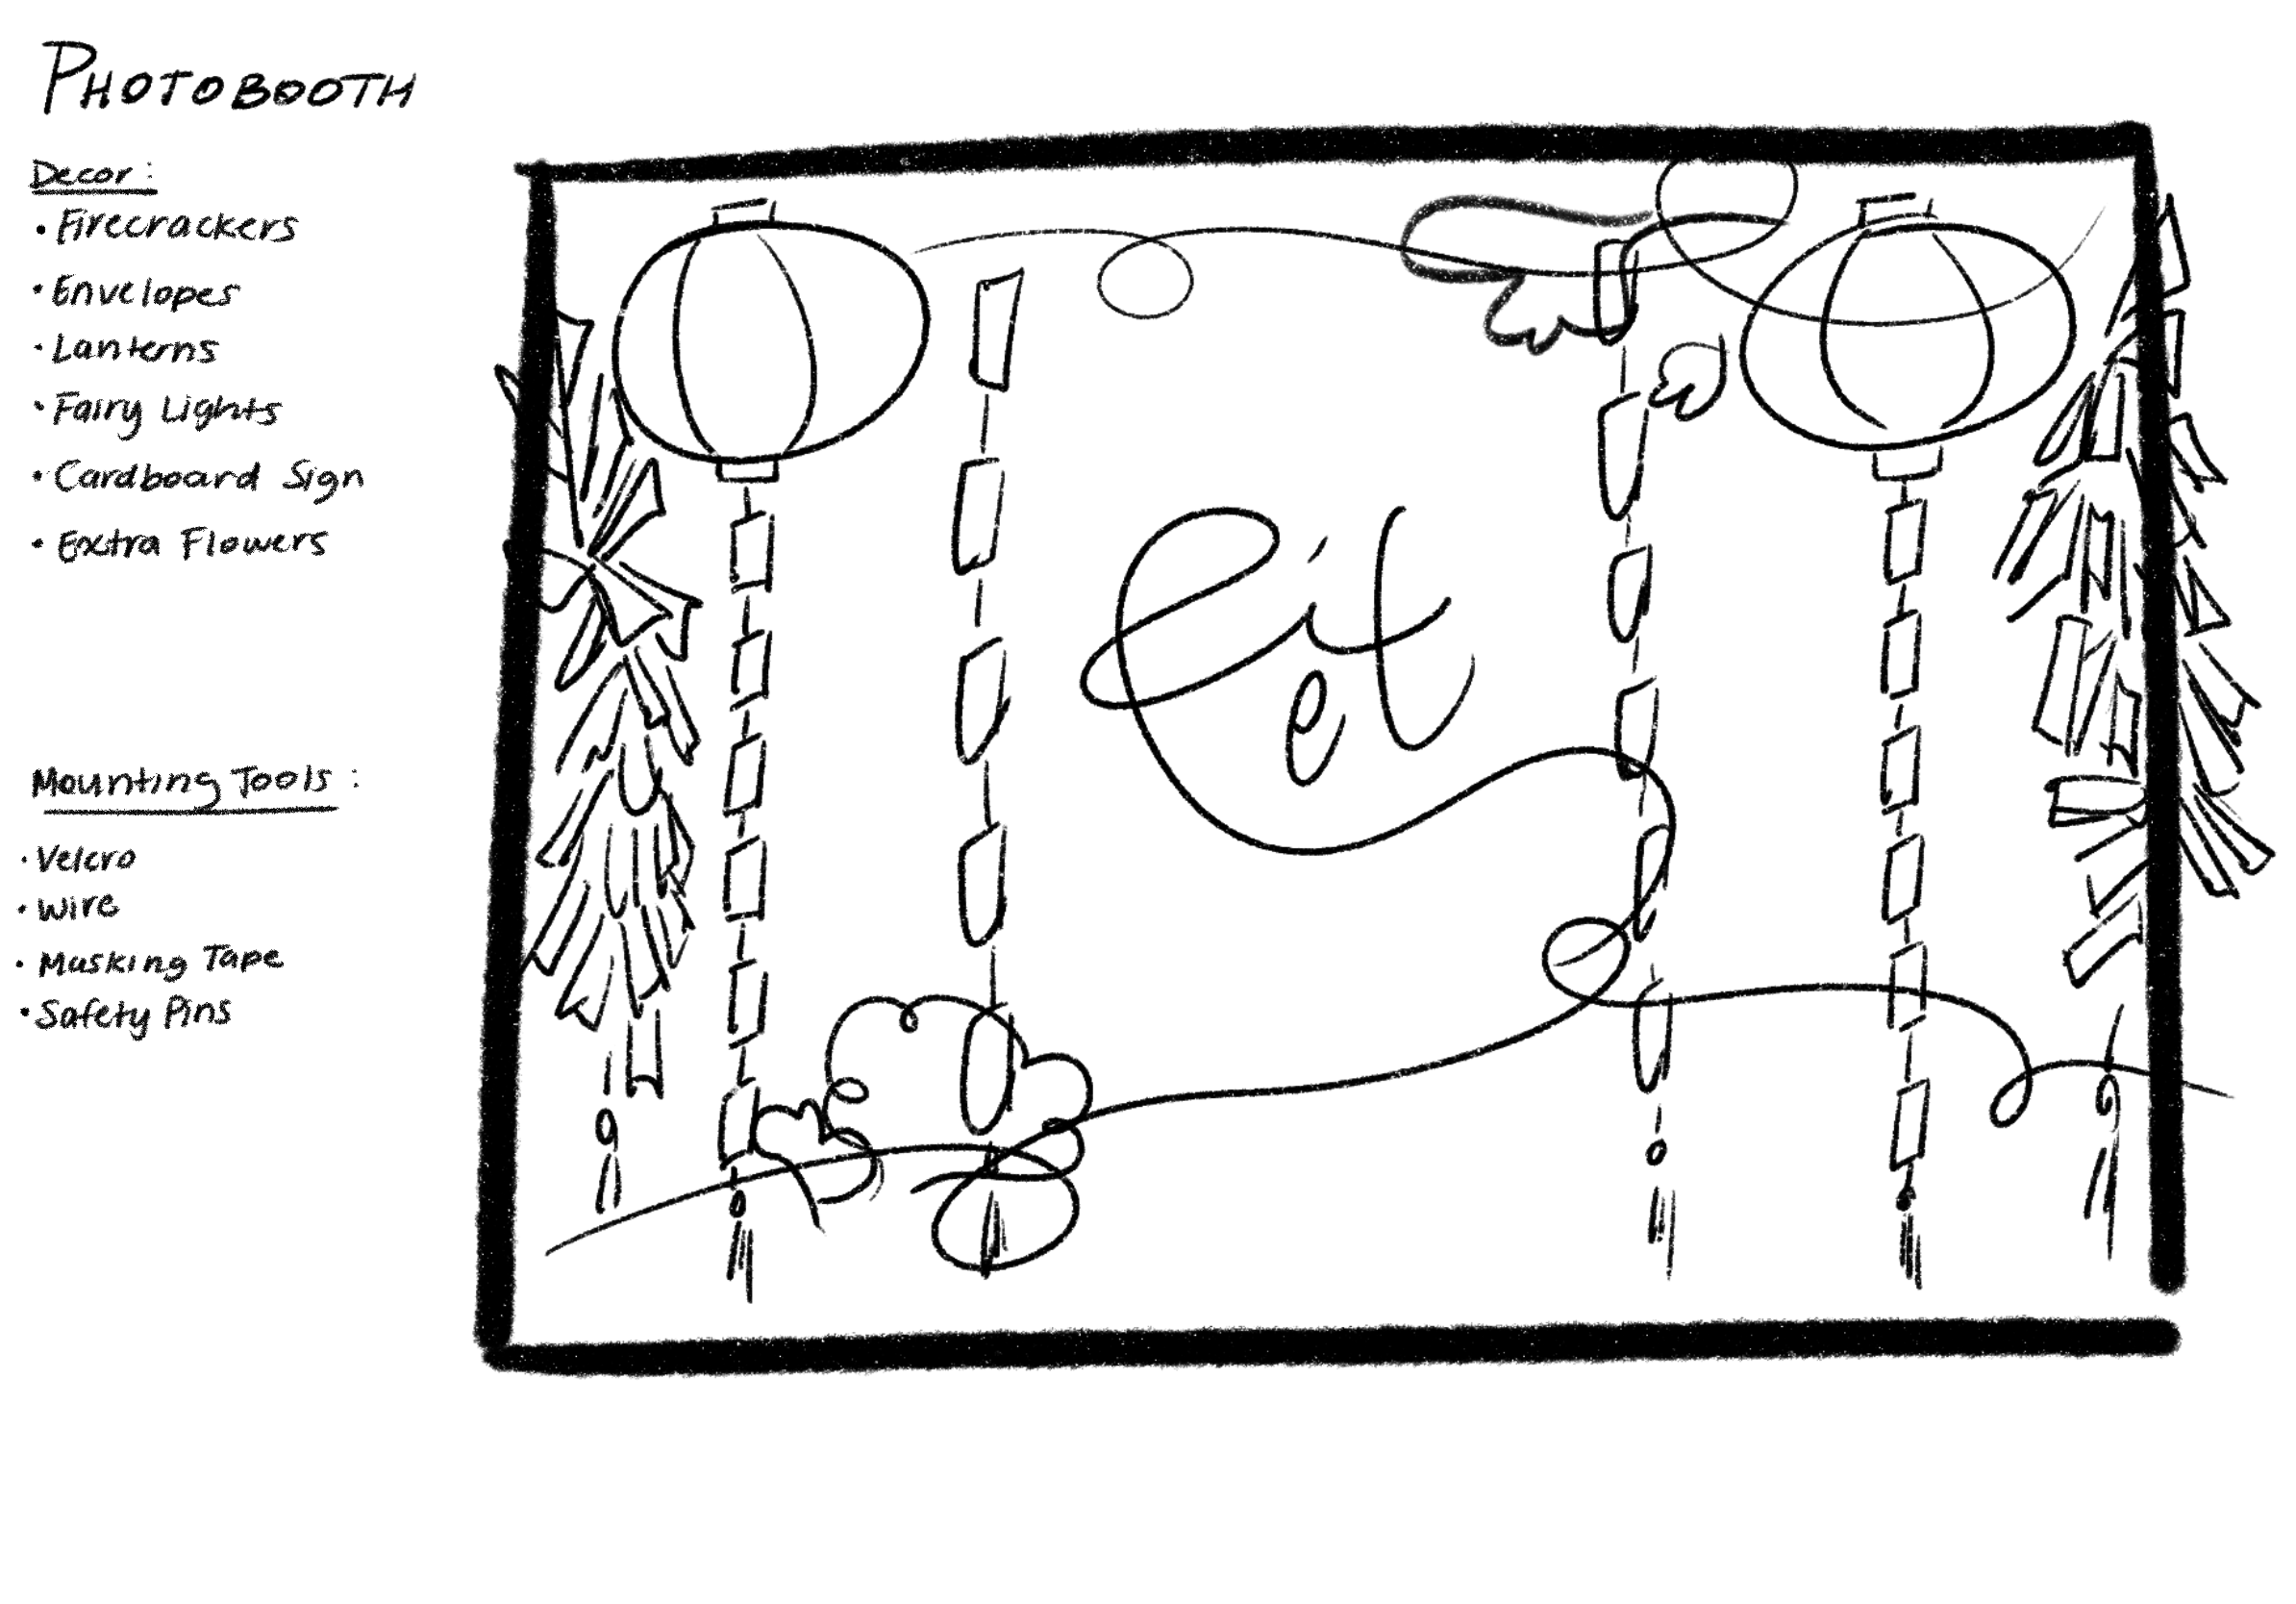 PHOTOBOOTH
Decor:
• Firecrackers
• Envelopes
• Lanterns
• Fairy Lights
• Cardboard Sign
• Extra Flowers
Mounting Tools:
• Velcro
• Wire
• Masking Tape
• Safety Pins